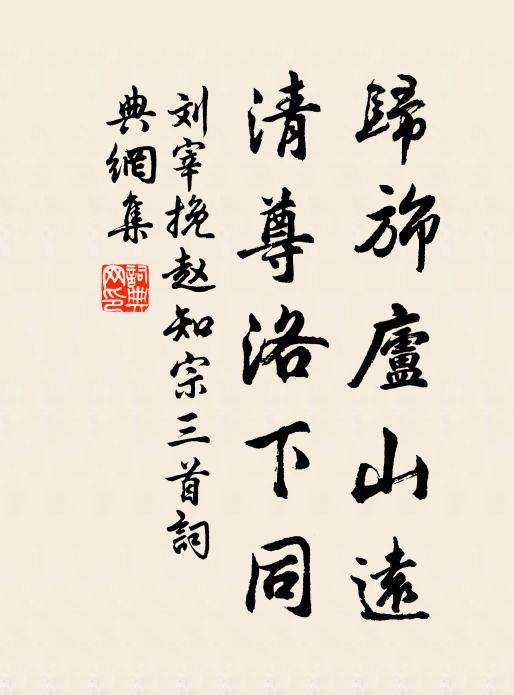 歸旆廬山遠
清尊洛下同
刘宰挽赵知宗三首詞
典網集
詞典网印